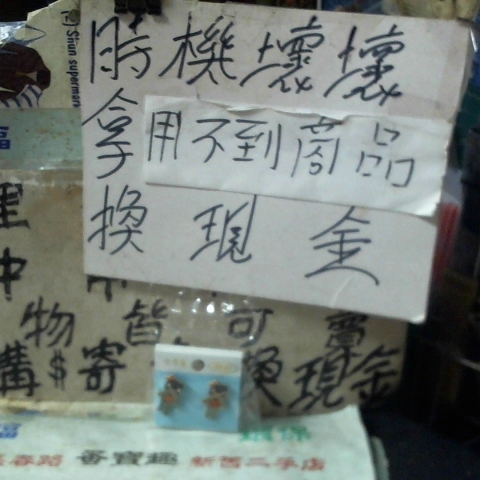 Shun superman
時機壞壞
拿用不到商品
換現金
福
里
中
物 皆 可 賣
購$寄 換現金
福
番寶趣 新舊二手店